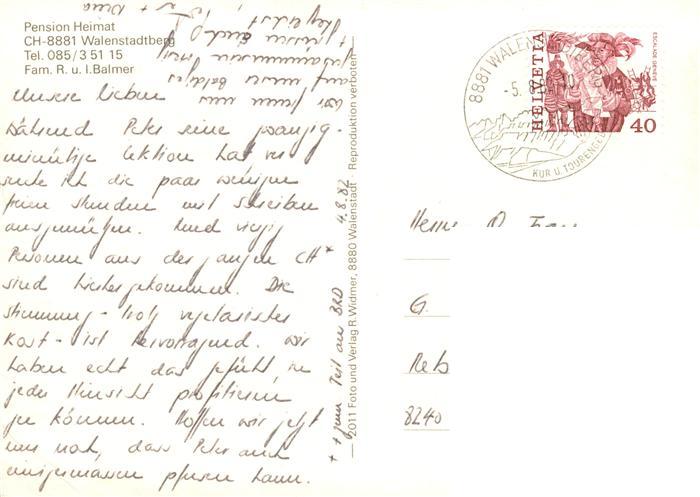 Pension Heimat
CH-8881 Walenstadtberg
Tel. 085/3 51 15
Fam. R. u. I. Balmer
Unsere Lieben
Während Peter eine zwanzig-
minütige Lektion hat ver
suche ich die paar wenigen
freien Stunden mit schreiben
auszunützen. Rund vierzig
Personen aus der ganzen CH*
sind hierher gekommen. Die
Stimmung - trotz vegetarischer
Kost - ist hervorragend. Wir
haben echt das Gefühl in
jeder Hinsicht profitieren
zu können. Hoffen wir jetzt
nur noch, dass Peter auch
einigermassen pfusen kann.
+ zum Teil aus BRD
4.8.82
wir freuen uns
auf unser baldiges
Zusammensein mit
Euch
2011 Foto und Verlag R. Widmer, 8880 Walenstadt · Reproduktion verboten
8881 WALEN
-5.8.
KUR U. TOURENGE
HELVETIA
ESCALADE GENÈVE
40
G.
Reb
8240